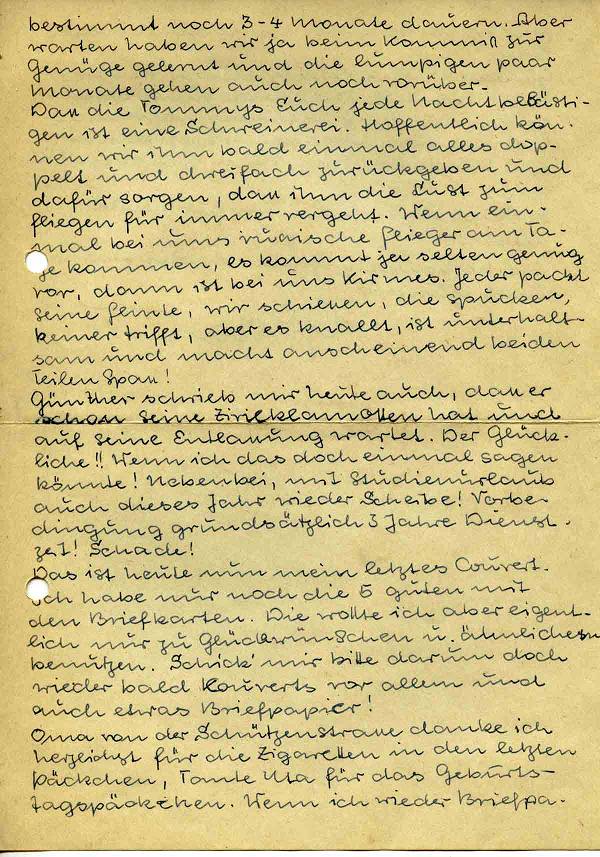 bestimmt noch 3-4 Monate dauern. Aber
warten haben wir ja beim Kommiß zur
Genüge gelernt und die lumpigen paar
Monate gehen auch noch vorüber.
Daß die Tommys Euch jede Nacht belästi-
gen ist eine Schweinerei. Hoffentlich kön-
nen wir ihm bald einmal alles dop-
pelt und dreifach zurückgeben und
dafür sorgen, daß ihm die Lust zum
fliegen für immer vergeht. Wenn ein-
mal bei uns russische Flieger am Ta-
ge kommen, es kommt ja selten genug
vor, dann ist bei uns Kirmes. Jeder packt
seine Flinte, wir schießen, die spucken,
keiner trifft, aber es knallt, ist unterhalt-
sam und macht anscheinend beiden
Teilen Spaß!
Günther schrieb mir heute auch, daß er
schon seine Zivilklamotten hat und
auf seine Entlaßung wartet. Der Glück-
liche!! Wenn ich das doch einmal sagen
könnte! Nebenbei, mit Studienurlaub
auch dieses Jahr wieder Scheibe! Vorbe-
dingung grundsätzlich 3 Jahre Dienst-
zeit! Schade!
Das ist heute nun mein letztes Couvert.
Ich habe nur noch die 5 guten mit
den Briefkarten. Die wollte ich aber eigent-
lich nur zu Glückwünschen u. ähnlichem
benutzen. Schick' mir bitte darum doch
wieder bald Kouverts vor allem und
auch etwas Briefpapier!
Oma von der Schützenstraße danke ich
herzlichst für die Zigaretten in den letzten
Päckchen, Tante Uta für das Geburts-
tagspäckchen. Wenn ich wieder Briefpa-